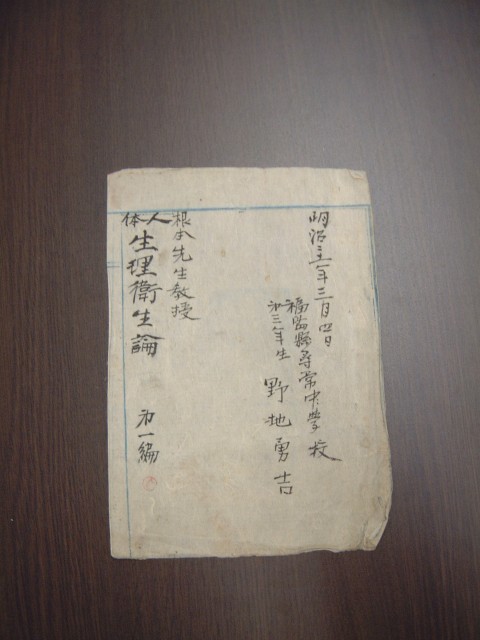 明治三十一年三月四日
福島縣尋常中学校
第三年生 野地勇吉
根本先生教授
人体
生理衛生論 第一編